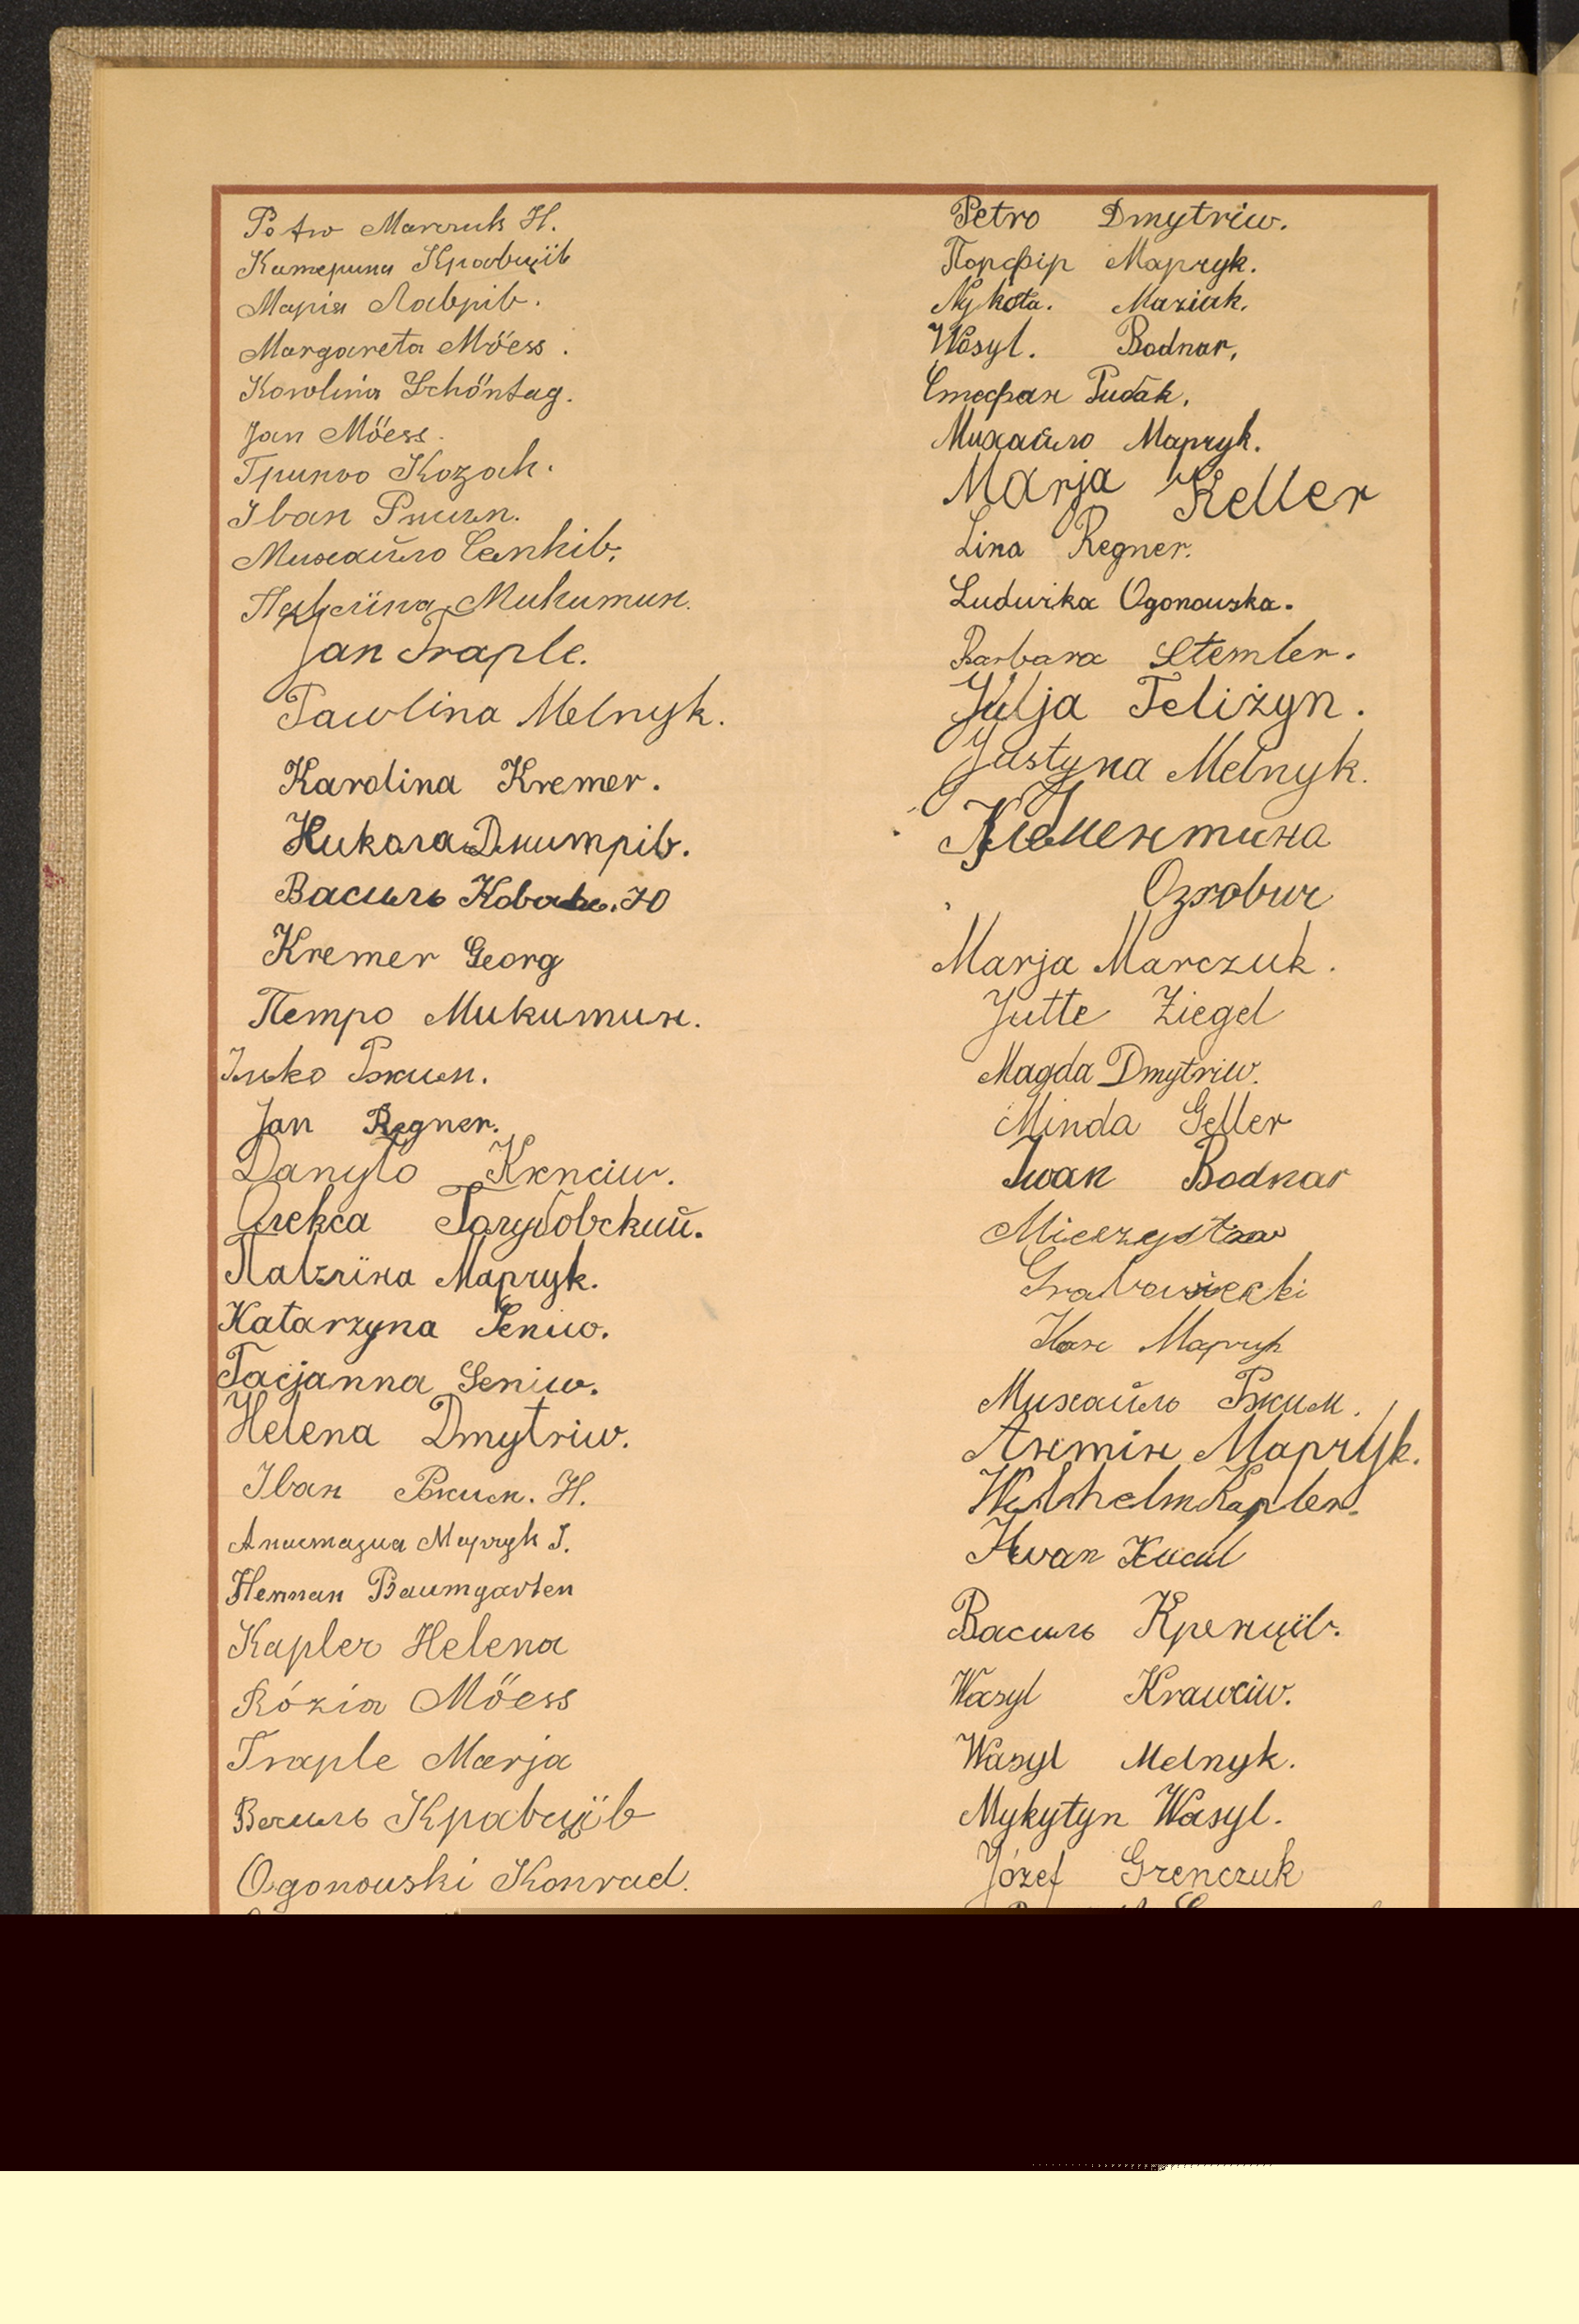 Petro Marczuk H.
Катерина Кравціїв
Марія Лаврів.
Margareta Möess.
Karolina Schöntag.
Jan Möess.
Гринько Козак.
Іван
Михайло Сеньків.
Павліна Микитин.
Jan Traple.
Pawlina Melnyk.
Karolina Kremer.
Никола Дмитрів.
Василь
Kremer Georg
Петро Микитин.
Ілько
Jan Regner.
Danyło
Олекса Голубовский.
Павліна Марчук.
Katarzyna Seniw.
Tacjanna Seniw.
Helena Dmytriw.
Іван Н.
Анастазия Марчук І.
Herman Baumgarten
Kapler Helena
Rózia Möess
Traple Marja
Василь Кравціїв
Ogonouski Konrad.
Petro Dmytriw.
Порфір Марчук.
Nykoła. Maziuk.
Wasyl. Bodnar,
Стефан Рибак.
Михайло Марчук.
Marja Keller
Lina Regner.
Ludwika Ogonouska.
Barbara Stemler.
Julja Teliżyn.
Justyna Melnyk.
Клементина
Marja Marczuk.
Jutte Ziegel
Magda Dmytriw.
Minda Geller
Iwan Bodnar
Mieczysław
Марчук
Михайло
Марчук.
Wilhelm Kapler.
Iwan
Василь Кренціїв.
Wasyl Krawciw.
Wasyl Melnyk.
Mykytyn Wasyl.
Józef Grenczuk